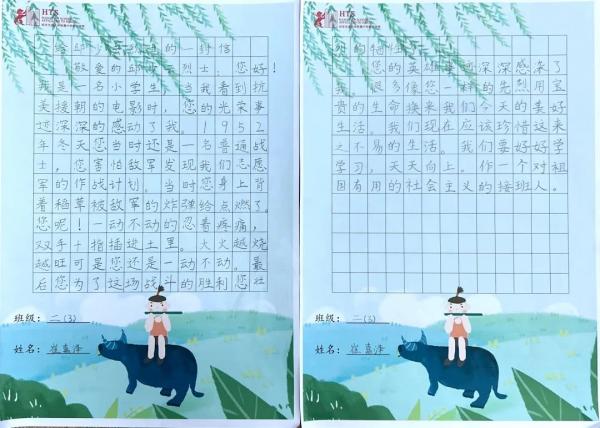 HTS
给邱少云烈士的一封信
敬爱的邱少云烈士：您好！
我是一名小学生，当我看到抗
美援朝的电影时，您的光荣事
迹深深的感动了我。1952
年冬天您当时还是一名普通战
士，您害怕敌军发现我们志愿
军的作战计划。当时您身上背
着稻草被敌军的炸弹给点燃了。
您呢！一动不动的忍着疼痛，
双手十指插进土里。大火越烧
越旺可是您还是一动不动。最
后您为了这场战斗的胜利您壮
班级：二(3)
姓名：崔嘉泽
HTS
烈的牺牲了。
您的英雄事迹深深感染了
我。很多像您一样的先烈用宝
贵的生命换来我们今天的美好
生活。我们现在应该珍惜这来
之不易的生活。我们要好好学
学习，天天向上。作一个对祖
国有用的社会主义的接班人。
班级：二(3)
姓名：崔嘉泽